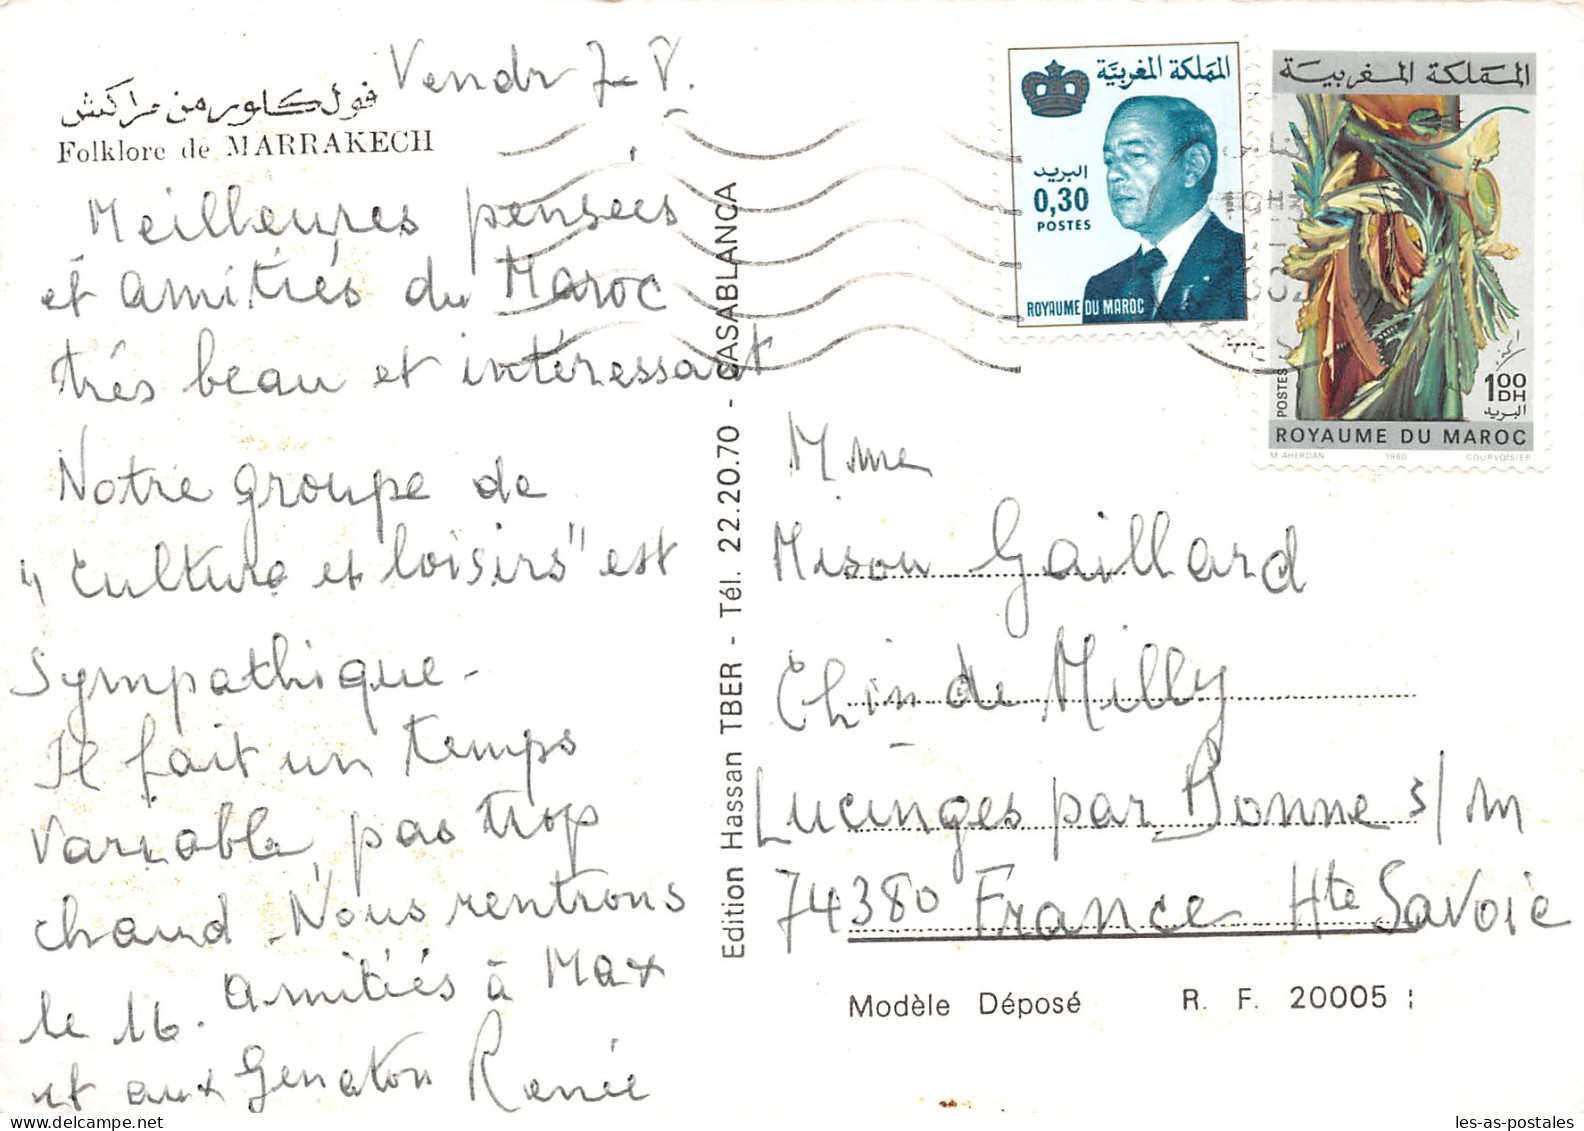 Vendr 7-V.
فولكلور من مراكش
Folklore de MARRAKECH
Meilleures pensées
et amitiés du Maroc
très beau et intéressant
Notre groupe de
"Culture et loisirs" est
sympathique -
Il fait un temps
variable, pas trop
chaud - Nous rentrons
le 16. Amitiés à Max
et aux Genaton Renée
Edition Hassan TBER - Tél. 22.20.70 - CASABLANCA
المملكة المغربية
البريد
0,30
POSTES
ROYAUME DU MAROC
المملكة المغربية
POSTES
1,00
DH
البريد
ROYAUME DU MAROC
M.AHERDAN 1980 COURVOISIER
Mme
Mison Gaillard
Chin de Milly
Lucinges par Bonne s/m
74380 France Hte Savoie
Modèle Déposé R. F. 20005
les-as-postales
www.delcampe.net